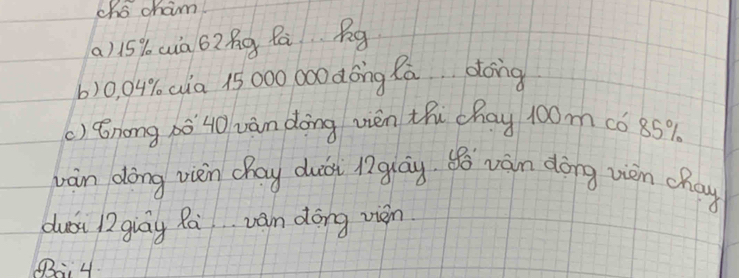 chỗ chấm.
a) 15% của 62kg là ... kg
b) 0,04% của 15 000 000 đồng là ... đồng
c) Trong số 40 vận động viên thi chạy 100m có 85%
vận động viên chạy dưới 12 giây. Số vận động viên chạy
dưới 12 giây là ... vận động viên.
Bài 4.